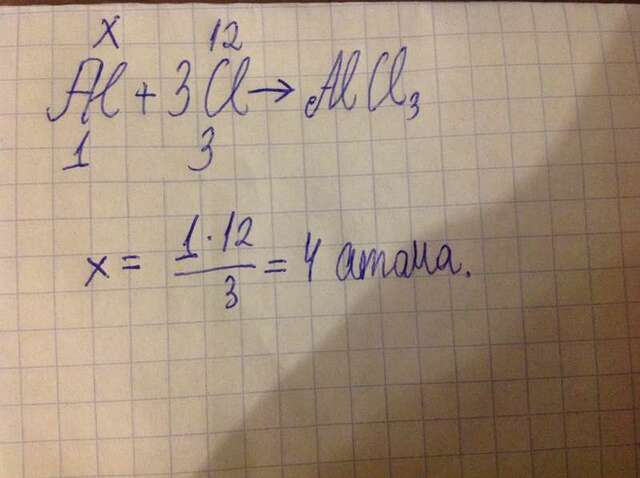 x 12
Al + 3Cl → AlCl₃
1 3
x = 1·12/3 = 4 атома.